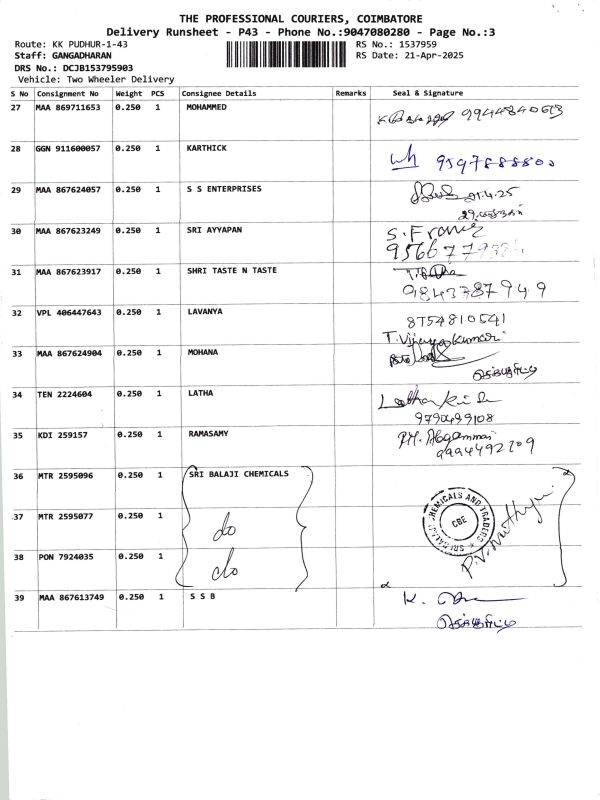 THE PROFESSIONAL COURIERS, COIMBATORE
Delivery Runsheet - P43 - Phone No.:9047080280 - Page No.:3
Route: KK PUDHUR-1-43 RS No.: 1537959
Staff: GANGADHARAN RS Date: 21-Apr-2025
DRS No.: DCJB153795903
Vehicle: Two Wheeler Delivery
S No Consignment No Weight PCS Consignee Details Remarks Seal & Signature
27 MAA 869711653 0.250 1 MOHAMMED
28 GGN 911600057 0.250 1 KARTHICK
29 MAA 867624057 0.250 1 S S ENTERPRISES 21.4.25
30 MAA 867623249 0.250 1 SRI AYYAPAN S. Francis
31 MAA 867623917 0.250 1 SHRI TASTE N TASTE
9843787949
32 VPL 406447643 0.250 1 LAVANYA
8754810541
T. Vijayakumari
33 MAA 867624904 0.250 1 MOHANA
34 TEN 2224604 0.250 1 LATHA
9790499108
35 KDI 259157 0.250 1 RAMASAMY
9994492209
36 MTR 2595096 0.250 1 SRI BALAJI CHEMICALS
SRI BALAJI CHEMICALS AND TRADERS
CBE
37 MTR 2595077 0.250 1 do
38 PON 7924035 0.250 1 do
39 MAA 867613749 0.250 1 S S B K.